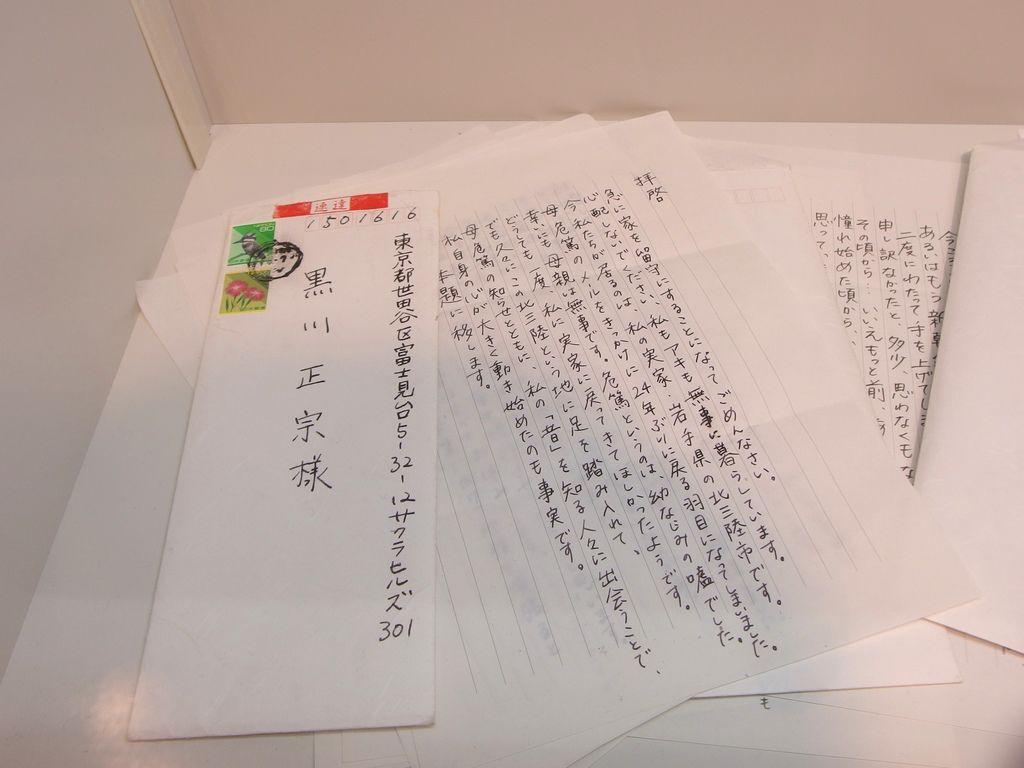 速達
1501616
東京都世田谷区富士見台5-32-12サクラヒルズ
301
黒川正宗様
80
拝啓
急に家を留守にすることになってごめんなさい。
心配しないでください、私もアキも無事に暮らしています。
今私たちが居るのは、私の実家、岩手県の北三陸市です。
母危篤のメールをきっかけに24年ぶりに戻る羽目になってしまいました。
幸いにも母親は無事です。危篤というのは、幼なじみの嘘でした。
どうしても一度、私に実家に戻ってきてほしかったようです。
でも久々にこの北三陸という地に足を踏み入れて、
母危篤の知らせとともに、私の「昔」を知る人々に出会うことで、
私自身の心が大きく動き始めたのも事実です。
本題に移します。
あるいはもう新車
二度にわたって手を上げてし
申し訳なかったと、多少、思わなくもな
その頃から…いいえもっと前、
憧れ始めた頃から、
思って
も